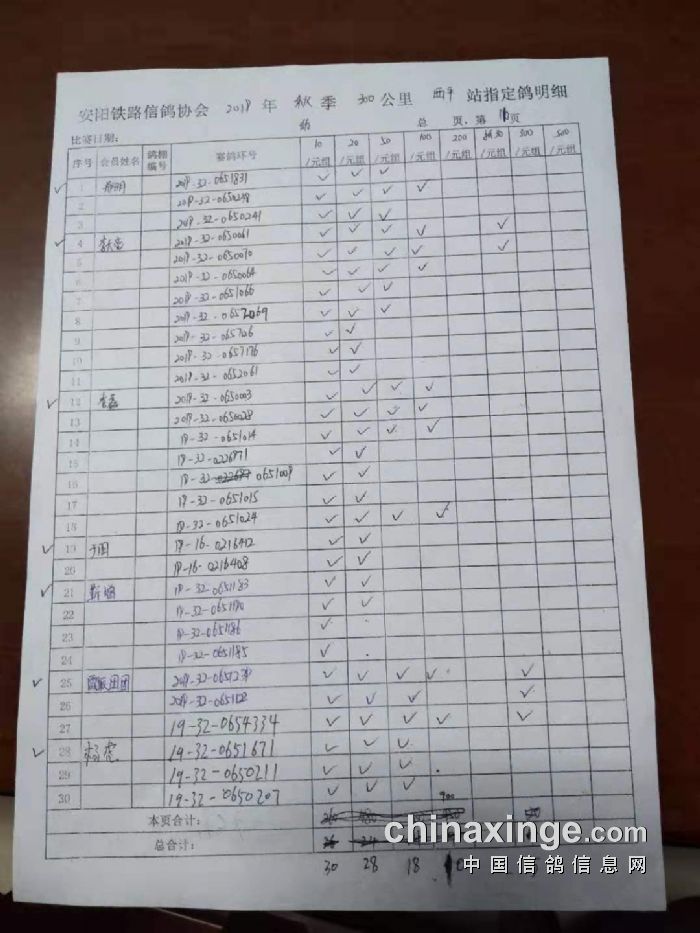 安阳铁路信鸽协会 2019 年 秋 季 300 公里 西平 站指定鸽明细
比赛日期： 幼 总 页，第 页
序号 会员姓名 鸽棚编号 赛鸽环号 10/元组 20/元组 50/元组 100/元组 200/元组 /元组 300/元组 500/元组
1 2019-32-0651831 ✓ ✓ ✓
2 2019-32-0650248 ✓ ✓ ✓ ✓
3 2019-32-0650241 ✓ ✓ ✓
4 2019-32-0650061 ✓ ✓ ✓ ✓ ✓
5 2019-32-0650070 ✓ ✓ ✓ ✓ ✓
6 2019-32-0650064 ✓ ✓ ✓ ✓
7 2019-32-0651066 ✓ ✓ ✓
8 2019-32- ✓ ✓ ✓
9 2019-32- ✓ ✓
10 2019-32-0657176 ✓ ✓
11 2019-32-0652061 ✓ ✓
12 2019-32-0650003 ✓ ✓ ✓ ✓
13 2019-32-0650028 ✓ ✓ ✓ ✓
14 19-32-0651014 ✓ ✓ ✓ ✓
15 19-32-0226871 ✓ ✓
16 19-32- 0651009 ✓ ✓
17 19-32-0651015 ✓ ✓
18 19-32-0651024 ✓ ✓ ✓ ✓
19 19-16-0216412 ✓ ✓
20 19-16-0216408 ✓ ✓
21 19-32-0651183 ✓ ✓
22 19-32- ✓ ✓
23 19-32-0651186 ✓
24 19-32-0651185 ✓ ✓
25 2019-32- ✓ ✓ ✓ ✓ ✓
26 2019-32- ✓ ✓ ✓ ✓
27 19-32-0654334 ✓ ✓ ✓ ✓ ✓
28 杨虎 19-32-0651671 ✓ ✓ ✓
29 19-32-0650211 ✓ ✓ ✓
30 19-32-0650207 ✓ ✓ ✓
本页合计： 900
总合计：
30 28 18 10
chinaxinge.com
中国信鸽信息网